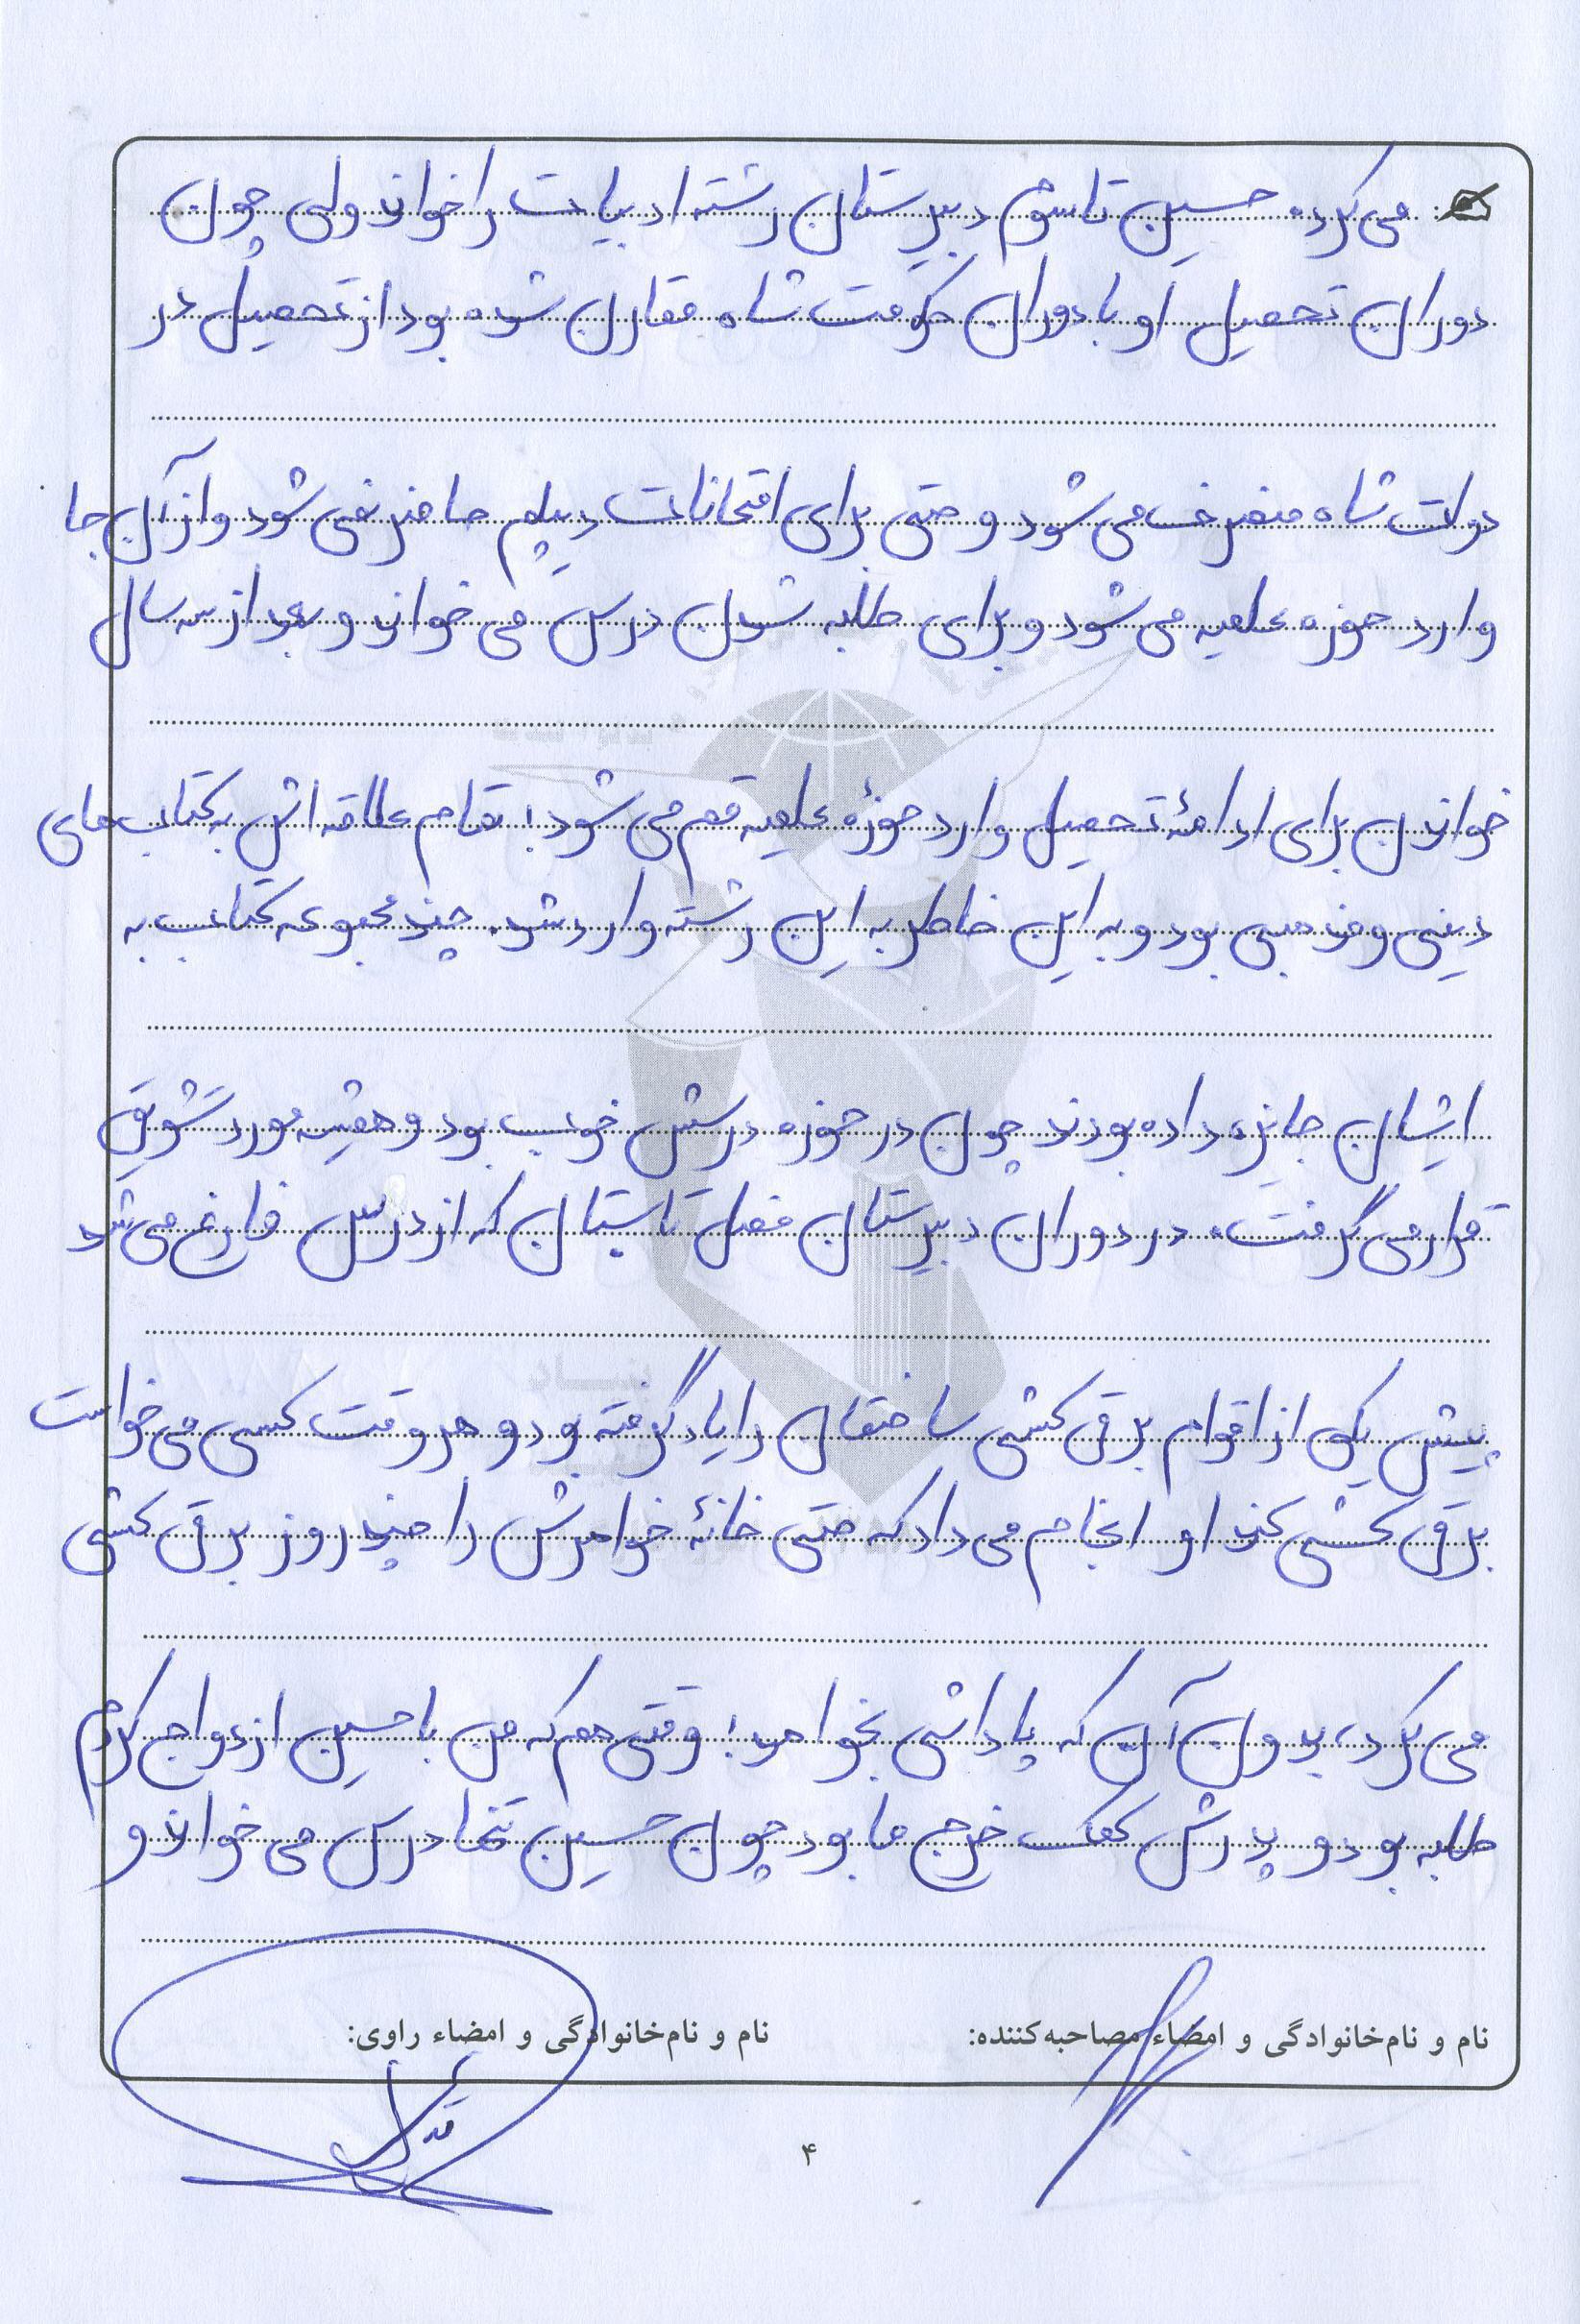 می‌کرد. حسین تا سوم دبیرستان رشته ادبیات را خواند ولی چون
دوران تحصیل او با دوران حکومت شاه مقارن شده بود از تحصیل در
دولت شاه منصرف می‌شود و حتی برای امتحانات دیپلم حاضر نمی‌شود و از آن جا
وارد حوزه علمیه می‌شود و برای طلبه شدن درس می‌خواند و بعد از سه سال
خواندن برای ادامهٔ تحصیل وارد حوزهٔ علمیه قم می‌شود؛ تمام علاقه اش به کتاب‌های
دینی و مذهبی بود و به این خاطر به این رشته وارد شد. چند مجموعه کتاب به
ایشان جایزه داده بودند چون در حوزه درسش خوب بود و همیشه مورد تشویق
قرار می‌گرفت. در دوران دبیرستان فصل تابستان که از درس فارغ می‌شد
پیش یکی از اقوام برق کشی ساختمان را یاد گرفته بود و هر وقت کسی می‌خواست
برق کشی کند او انجام می‌داد که حتی خانهٔ خواهرش را چند روز برق کشی
می‌کرد، بدون آن که پاداشی بخواهد؛ وقتی هم که من با حسین ازدواج کردم
طلبه بود و پدرش کمک خرج ما بود چون حسین تنها درس می‌خواند و
نام و نام‌خانوادگی و امضاء مصاحبه‌کننده: نام و نام‌خانوادگی و امضاء راوی:
۴